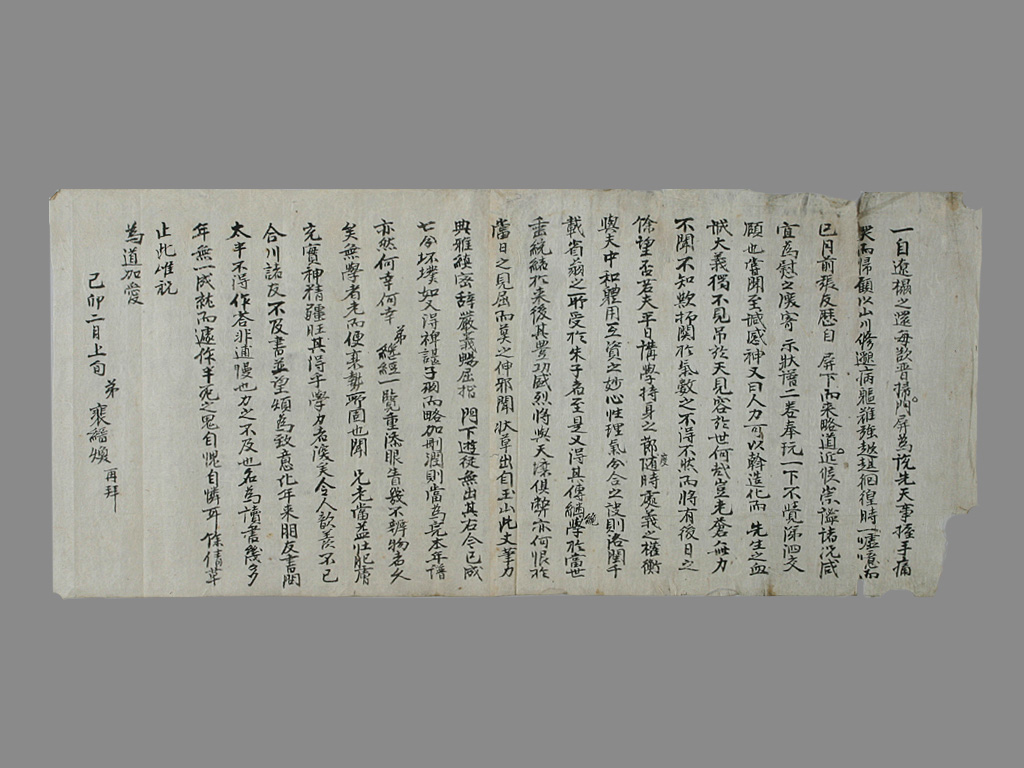 一自遠撝之還每歎晋掃門屏爲說先天事握手痛
哭而歸顧以山川脩邈病軀難强越趄徊徨時一噓噫而
已月前張友歷自 屏下而來略道近候崇謐諸況咸
宜爲慰之深寄示狀譜二卷奉玩一下不覺涕泗交
願也嘗聞至諴感神又曰人力可以斡造化而 先生之血
忱大義獨不見吊於天見容於世何哉豈老蒼無力
不聞不知欺抑關於氣數之不得不狀而將有後日之
餘望否若夫平日講學持身之節度隨時處義之權衡
與夫中和軆用互資之妙心性理氣分合之訣則洛閩千
載省翁之所受於朱子者至是又得其傳繼統學於當世
垂統緖於來後其豐功盛烈將與天壤俱弊亦何恨於
當日之見屈而莫之伸邪聞 狀草出自玉山此文筆力
典雅縝密辞嚴義暢屈指 門下遊徒無出其右今已成
七分坏墣如又得稗諶子珚而略加刪潤則當爲完本年譜
亦然何幸何幸 弟繼經一覽重添眼眚幾不辨物者久
矣無學者老而便衰勢所固也聞 兄老當益壯肥膚
充實神精疆旺其得乎學力者深矣令人歆羨不已
合川諸友不及書並望煩爲致意化年來朋友書問
太半不得作答非逋慢也力之不及也名爲讀書幾多
年無一成就而遽作半死之鬼自愧自憐耳餘倩草
止此惟祝
爲道加愛
己卯二月上旬 弟 裵縉煥 再拜